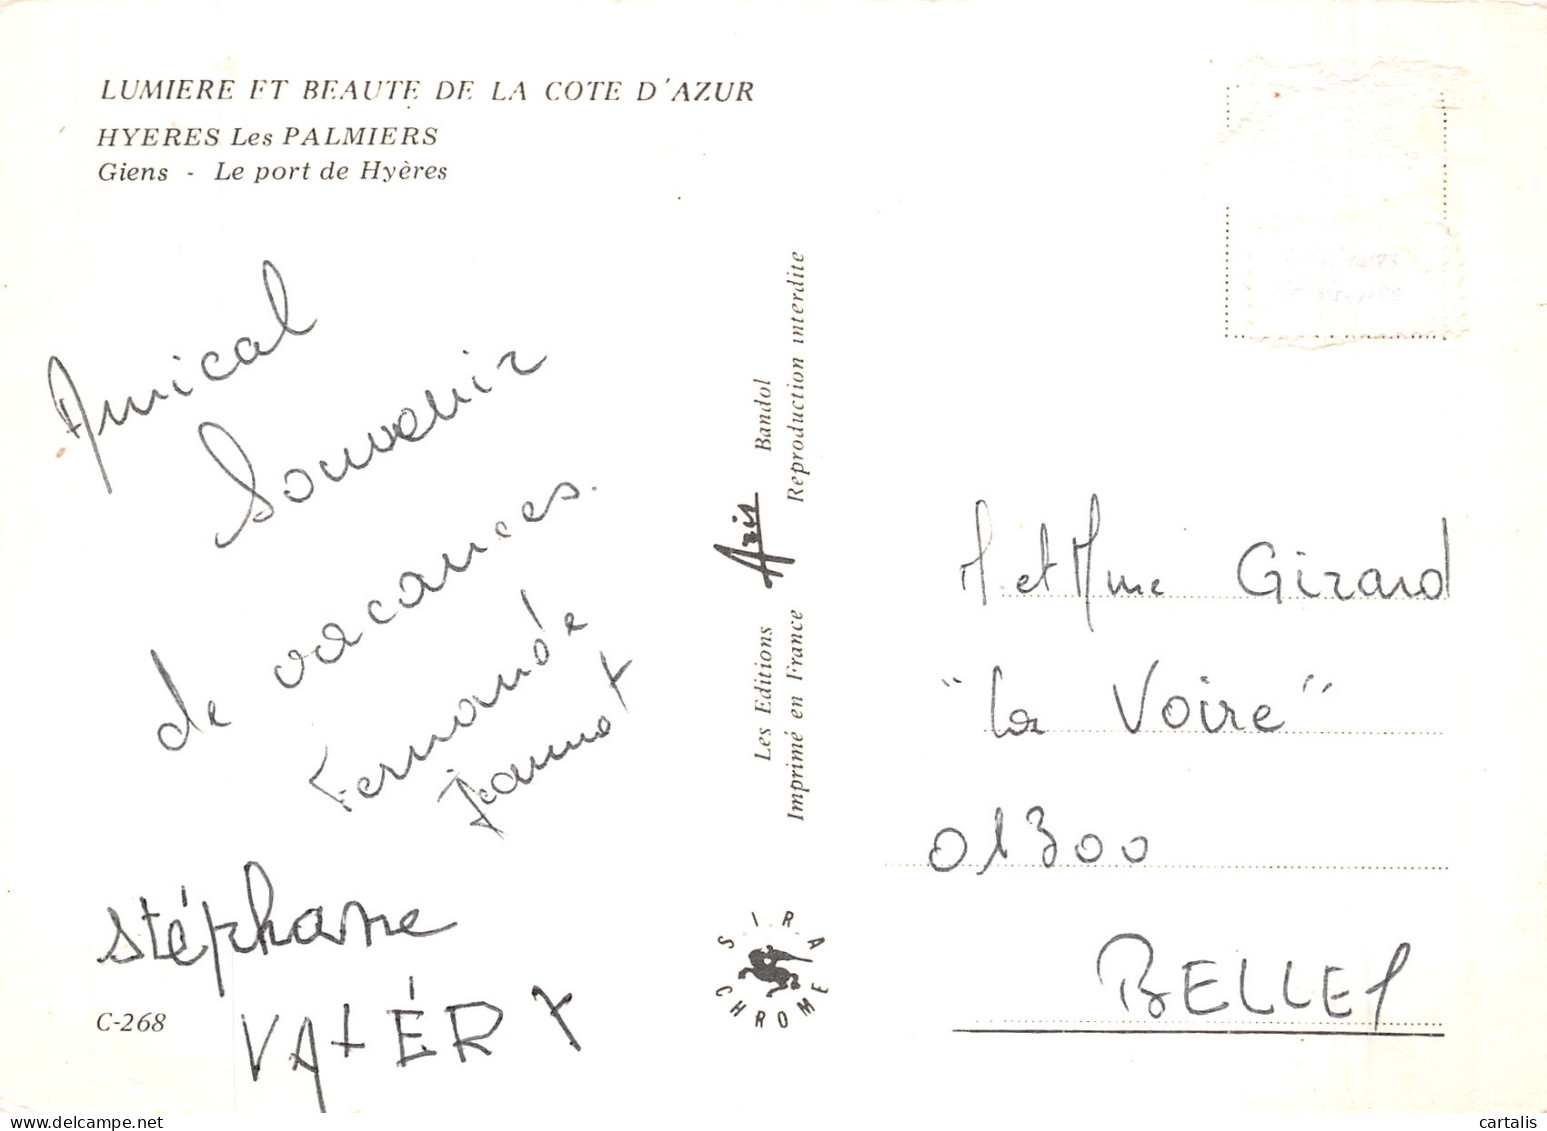 LUMIERE ET BEAUTE DE LA COTE D'AZUR
HYERES Les PALMIERS
Giens - Le port de Hyères
Amical
Souvenir
de vacances.
Fernande
Jeannot
Stéphane
VALÉRY
C-268
Les Editions Azis Bandol
Imprimé en France Reproduction interdite
SIRA
CHROME
M. et Mme Girard
"La Voire"
01300
BELLEY
cartalis